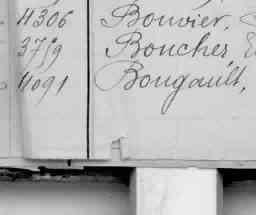 4306 Bouvier,
3759 Boucher
4091 Bougault,